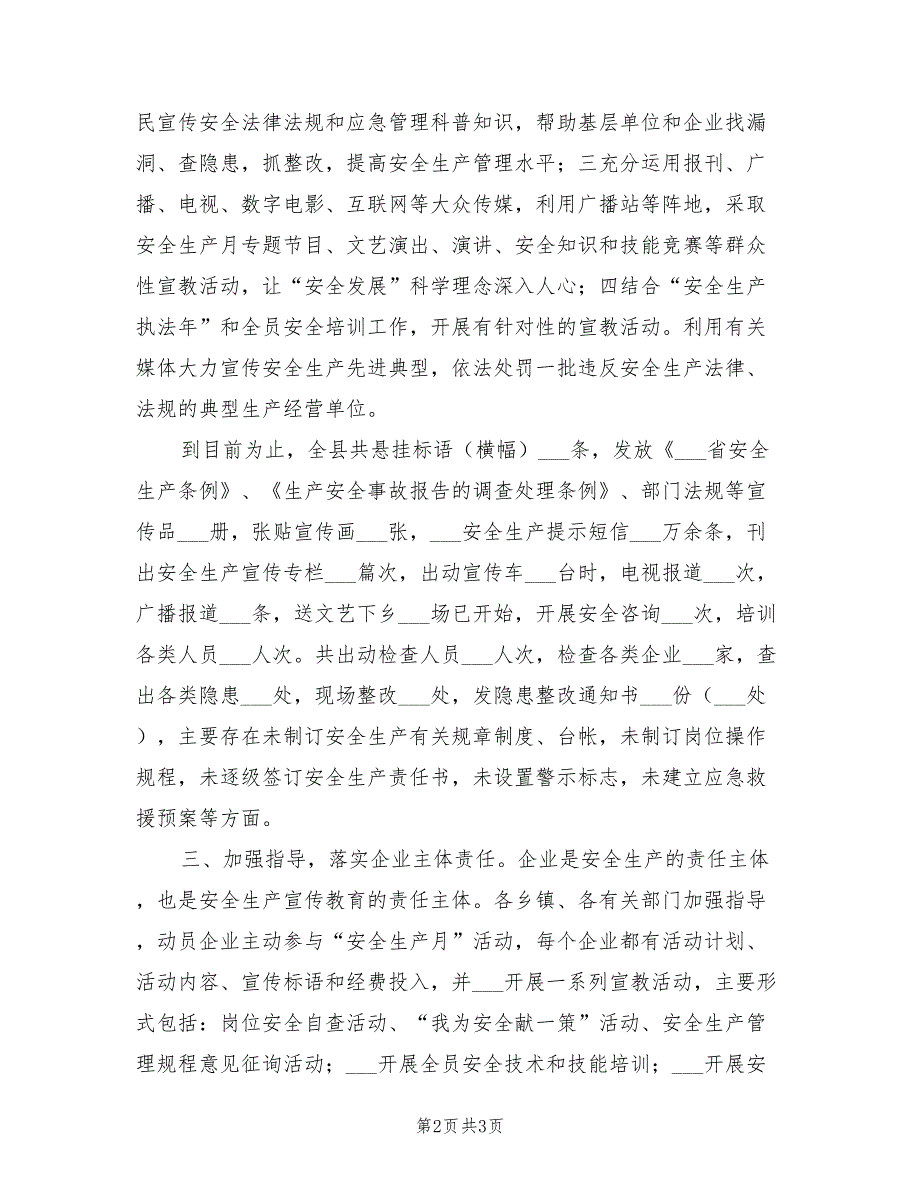 民宣传安全法律法规和应急管理科普知识，帮助基层单位和企业找漏
洞、查隐患，抓整改，提高安全生产管理水平；三充分运用报刊、广
播、电视、数字电影、互联网等大众传媒，利用广播站等阵地，采取
安全生产月专题节目、文艺演出、演讲、安全知识和技能竞赛等群众
性宣教活动，让“安全发展”科学理念深入人心；四结合“安全生产
执法年”和全员安全培训工作，开展有针对性的宣教活动。利用有关
媒体大力宣传安全生产先进典型，依法处罚一批违反安全生产法律、
法规的典型生产经营单位。
到目前为止，全县共悬挂标语（横幅）___条，发放《___省安全
生产条例》、《生产安全事故报告的调查处理条例》、部门法规等宣
传品___册，张贴宣传画___张，___安全生产提示短信___万余条，刊
出安全生产宣传专栏___篇次，出动宣传车___台时，电视报道___次，
广播报道___条，送文艺下乡___场已开始，开展安全咨询___次，培训
各类人员___人次。共出动检查人员___人次，检查各类企业___家，查
出各类隐患___处，现场整改___处，发隐患整改通知书___份（___处
），主要存在未制订安全生产有关规章制度、台帐，未制订岗位操作
规程，未逐级签订安全生产责任书，未设置警示标志，未建立应急救
援预案等方面。
三、加强指导，落实企业主体责任。企业是安全生产的责任主体
，也是安全生产宣传教育的责任主体。各乡镇、各有关部门加强指导
，动员企业主动参与“安全生产月”活动，每个企业都有活动计划、
活动内容、宣传标语和经费投入，并___开展一系列宣教活动，主要形
式包括：岗位安全自查活动、“我为安全献一策”活动、安全生产管
理规程意见征询活动；___开展全员安全技术和技能培训；___开展安
第2页 共3页